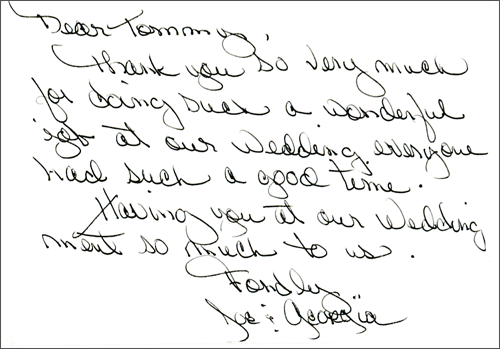 Dear Tommy,
Thank you so very much
for doing such a wonderful
job at our wedding. everyone
had such a good time.
Having you at our Wedding
ment so much to us.
Fondly,
Joe & Georgia